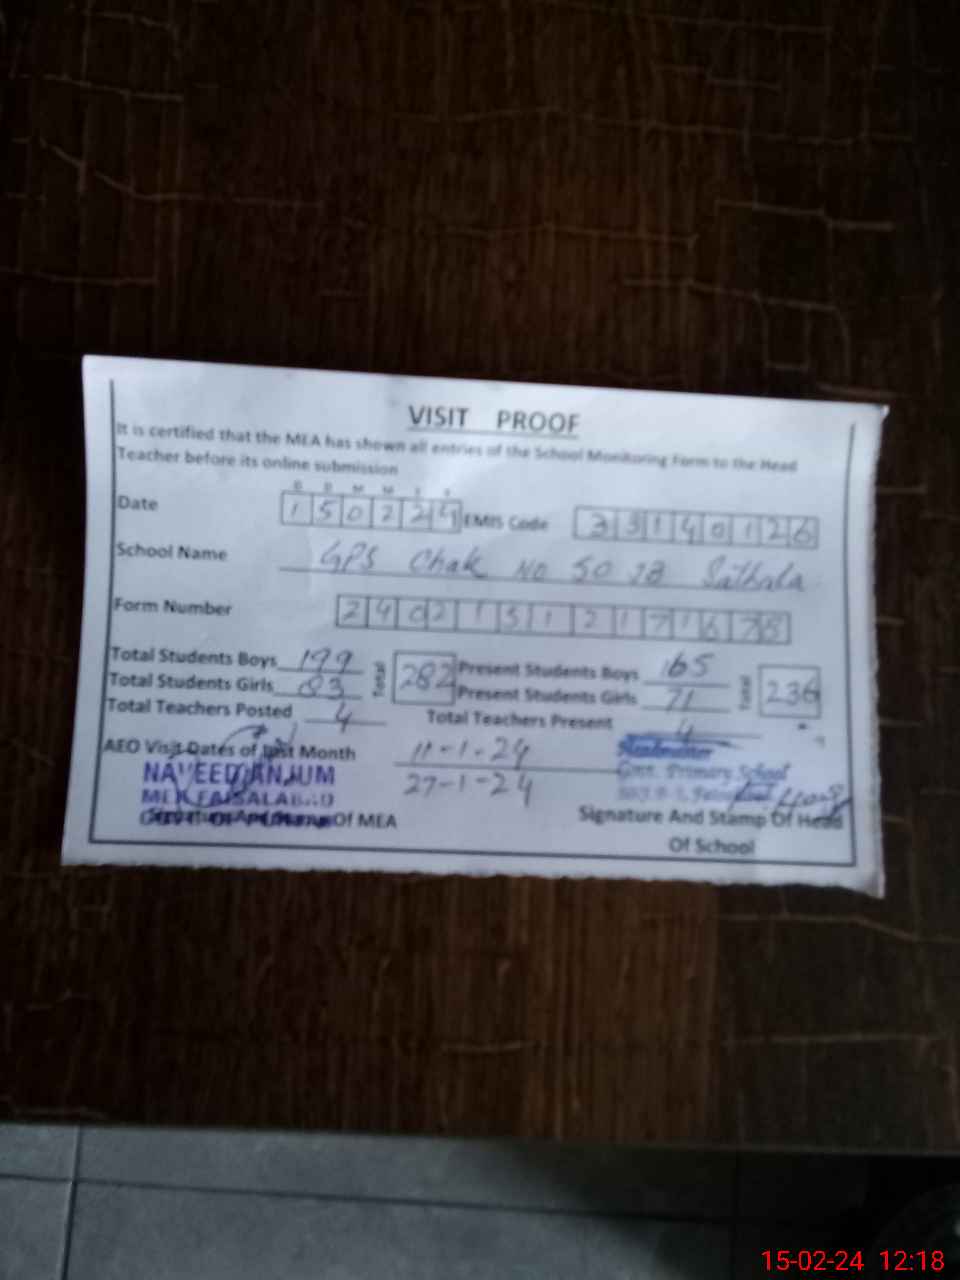 VISIT PROOF
It is certified that the MEA has shown all entries of the School Monitoring Form to the Head
Teacher before its online submission
D D M M Y Y
Date 150224 EMIS Code 33140126
School Name GPS Chak No 50 JB Sathala
Form Number
Total Students Boys 199 Total 282 Present Students Boys 165 Total 236
Total Students Girls 83 Present Students Girls 71
Total Teachers Posted 4 Total Teachers Present 4
AEO Visit Dates of last Month 11-1-24
27-1-24
NAVEED ANJUM
MEA FAISALABAD
GOVT OF PUNJAB
Signature And Stamp Of MEA
Headmaster
Govt. Primary School
Signature And Stamp Of Head
Of School
15-02-24 12:18